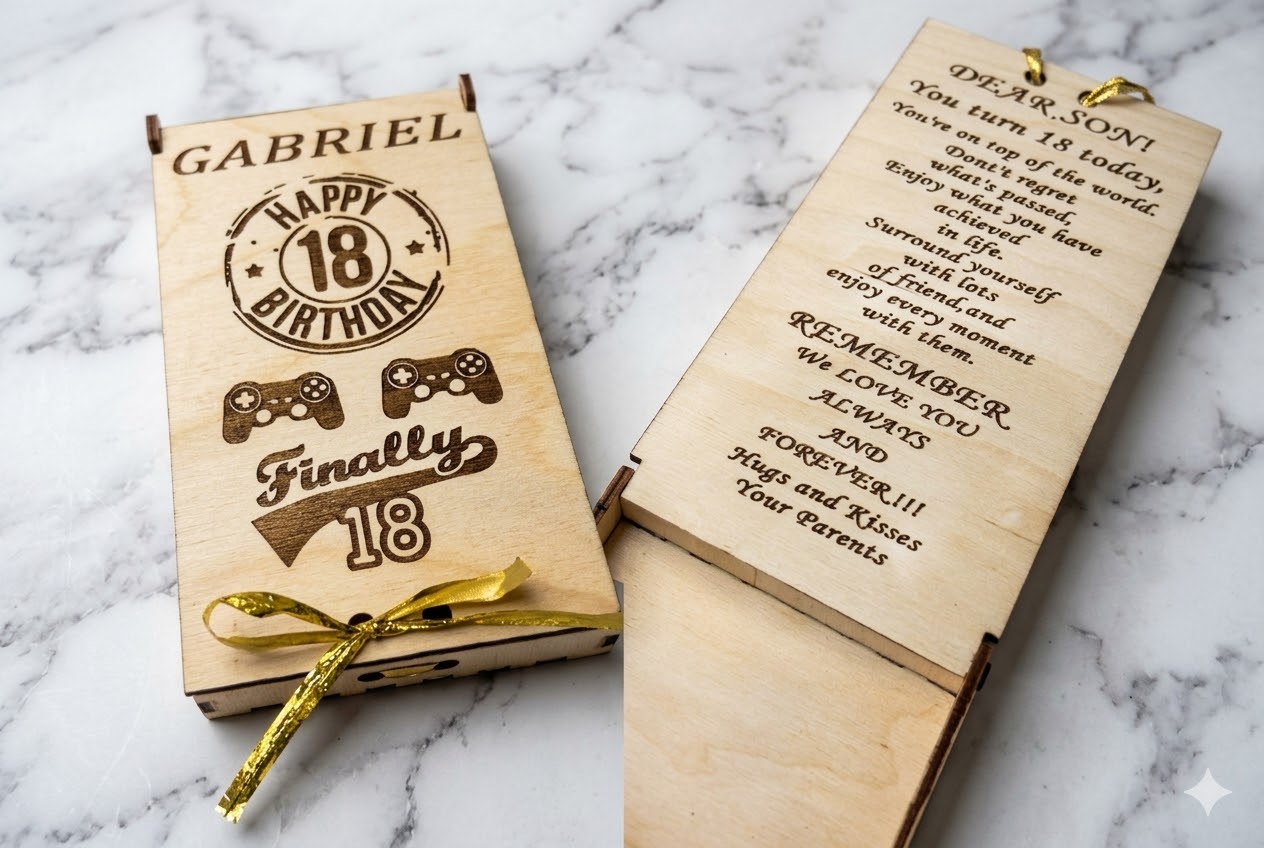 GABRIEL
HAPPY
18
BIRTHDAY
Finally
18
DEAR.SON!
You turn 18 today,
You're on top of the world.
Dont't regret
what's passed,
Enjoy what you have
achieved
in life.
Surround yourself
with lots
of friend,and
enjoy every moment
with them.
REMEMBER
We LOVE YOU
ALWAYS
AND
FOREVER!!!
Hugs and Kisses
Your Parents